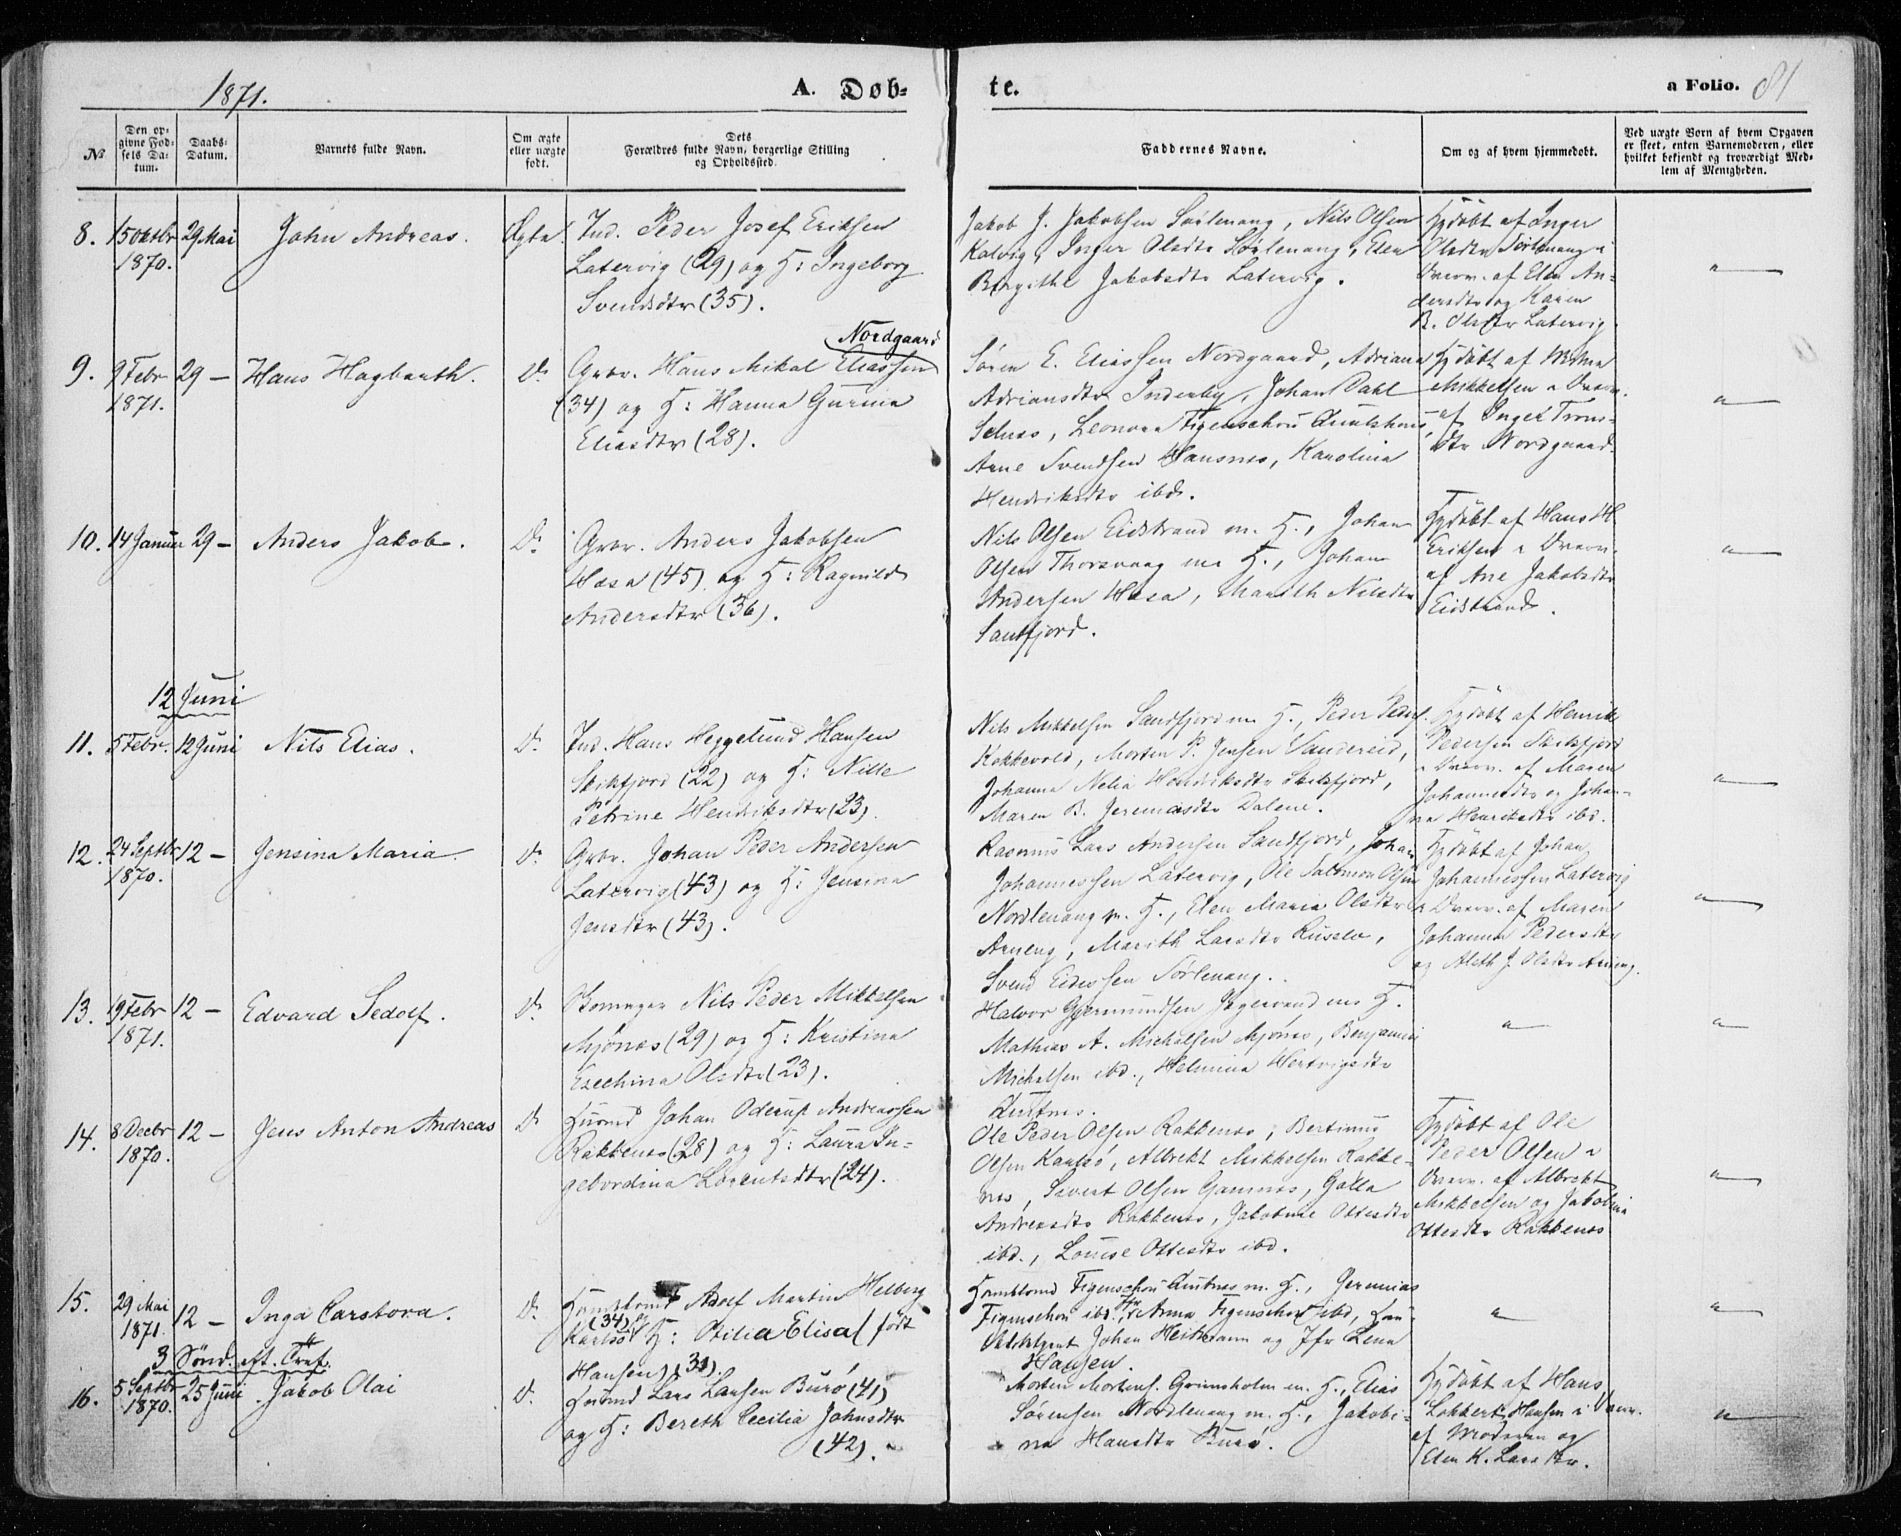 1871.
A. Døb-
te.
a Folio. 81
№
Den op-
givne Fød-
sels Da-
tum.
Daabs-
Datum.
Barnets fulde Navn.
Om ægte
eller uægte
født.
Dets
Forældres fulde Navn, borgerlige Stilling
og Opholdssted.
Faddernes Navne.
Om og af hvem hjemmedøbt.
Ved uægte Børn af hvem Opgaven
er skeet, enten Barnemoderen, eller
hvilket bekjendt og troværdigt Med-
lem af Menigheden.
8. 15 Oktbr 29 Mai John Andreas. Ægte.
1870.
Ind. Peder Josef Eriksen
Latervig (29) og H: Ingeborg
Svendsdtr (35).
Jakob J. Jakobsen Sørlenang, Nils Olsen
Kalvig, Inger Olsdtr Sørlenang, Elen
Birgithe Jakobsdtr Latervig.
Hjdøbt af Inger
Olsdtr Sørlenang i
Overv. af Elen An-
dersdtr og Karen
B. Olsdtr Latervig.
9. 9 Febr 29 — Hans Hagbarth. Do
1871.
Nordgaard
Grbr. Hans Mikal Eliassen
(34) og H: Hanna Gurine
Eliasdtr (28).
Søren E. Eliassen Nordgaard, Adriana
Adriansdtr Inderby, Johan Dahl
Selnes, Leonora Figenschou
Arne Svendsen Hansnes, Karolina
Hendriksdtr ibd.
Hjdøbt af
Mikkelsen i Overv.
af Inger Trons-
dtr Nordgaard.
10. 14 Januar 29 — Anders Jakob. Do
Grbr. Anders Jakobsen
Hæsa (45) og H: Ragnild
Andersdtr (36).
Nils Olsen Eidstrand m. H., Johan
Olsen Thorsvaag m. H., Johan
Andersen Hæsa, Marith Nilsdtr
Sandfjord.
Hjdøbt af Hans H.
Eriksen i Overv.
af Ane Jakobsdtr
Eidstrand.
12 Juni
11. 5 Febr. 12 Juni Nils Elias. Do
Ind. Hans Heggelund Hansen
Skibfjord (22) og H: Nille
Petrine Hendriksdtr (23).
Nils Mikkelsen Sandfjord m. H., Peder Peders.
Kokkevold, Morten P. Jensen Vandereid,
Johanna Nelia Hendriksdtr Skibsfjord,
Maren B. Jeremiasdtr Dalene.
Hjdøbt af Henrik
Pedersen Skibfjord
i Overv. af Maren
Johannesdtr og Johan-
na Henriksdtr ibd.
12. 24 Septbr 12 — Jensina Maria. Do
1870.
Grbr. Johan Peder Andersen
Latervig (43) og H: Jensina
Jensdtr (43).
Rasmus Lars Andersen Sandfjord, Johan
Johannessen Latervig, Ole Salomon Olsen
Nordlenang m. H., Elen Maria Olsdtr
Arneng, Marith Larsdtr Ruselv,
Svend Sørlenang.
Hjdøbt af Johan
Johannessen Latervig
i Overv. af Maren
Johanna Pedersdtr
og Aleth J. Olsdtr Arneng.
13. 19 Febr 12 — Edvard Sedolf. Do
1871.
Nils Peder Mikkelsen
Mjønes (29) og H: Kristina
Esechina Olsdtr (23).
Halvor Gjermundsen Jægervand m. H.
Mathias A. Michelsen Mjønes, Benjamin
Michelsen ibd., Helmina Hertvigsdtr
14. 8 Decbr 12 — Jens Anton Andreas Do
1870.
Husmd Johan Oderup Andreassen
Rakkenes (28) og H: Laura In-
gebordina Lorentsdtr (24).
Ole Peder Olsen Rakkenes, Bertinus
Olsen Karlsø, Albrekt Mikkelsen Rakke-
nes, Sivert Olsen Gamnes, Golla
Andreasdtr Rakkenes, Jakobine Ottesdtr
ibd., Louise Ottesdtr ibd.
Hjdøbt af Ole
Peder Olsen i
Overv. af Albrekt
Mikkelsen og Jakobina
Ottesdtr Rakkenes
15. 29 Mai 12 — Inga Carstova. Do
1871.
Adolf Martin Helberg
(34) og
Karlsø H: Otilia Elisa (født
Hansen) (31).
Figenschou m. H., Jeremias
Figenschou ibd. Jfr Anna Figenschou ibd,
Johan Heitmann og Jfr Lena
Hansen.
3 Sønd. eft. Tref.
16. 5 Septbr 25 Juni Jakob Olai Do
1870.
Husmd Lars Larsen Burø (41)
og H: Bereth Cecilia Johnsdtr
(42).
Morten Mortens. Grimsholm m. H., Elias
Sørensen Nordlenang m. H., Jakobi-
na Hansdtr Burø.
Hjdøbt af Hans
Lokkert Hansen i Overv.
af Moderen og
Elen K. Larsdtr.